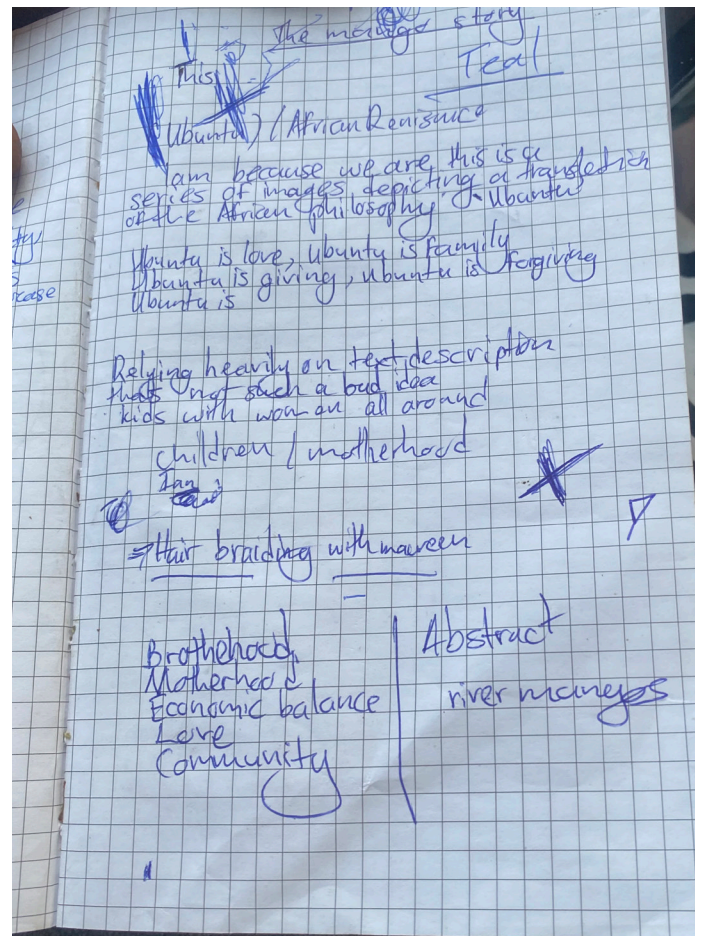 The mango story
Teal
This
Ubuntu) / (African Renisance
I am because we are, this is a
series of images depicting a translation
of the African philosophy - Ubuntu
Ubuntu is love, Ubuntu is family
Ubuntu is giving, ubuntu is forgiving
Ubuntu is
Relying heavily on text, description
thats not such a bad idea
kids with woman all around
children / motherhood
⇒ Hair braiding with maureen
Brothehood
Motherhood
Economic balance
Love
Community
Abstract
river manges
ty
kase